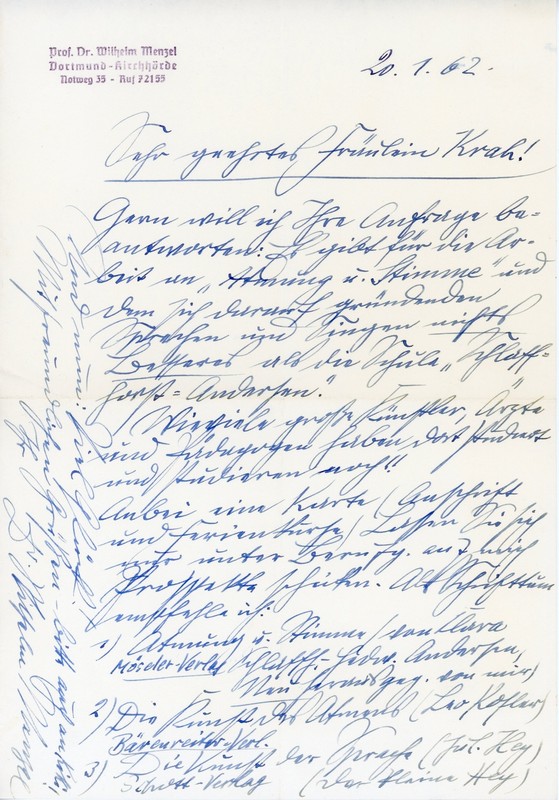 Prof. Dr. Wilhelm Menzel
Dortmund-Kirchhörde
Notweg 35 - Ruf 72155
20. 1. 62.
Sehr geehrtes Fräulein Krah!
Gern will ich Ihre Anfrage be-
antworten: Es gibt für die Ar-
beit an „Atmung u. Stimme" und
dem sich darauf gründenden
Sprechen und Singen nichts
Besseres als die Schule „Schlaff-
horst-Andersen".
Wieviele große Künstler, Ärzte
und Pädagogen haben dort studiert
und studieren noch!!
Anbei eine Karte (Anschrift
und Ferienkurse) Lassen Sie sich
nur unter Berufg. auf mich
Prospekte schicken. Als Schrifttum
empfehle ich:
1) Atmung u. Stimme (von Klara
Möseler-Verlag Schlaffh.-Hedw. Andersen,
Neu herausgeg. von mir)
2) Die Kunst des Atmens (Leo Kofler)
Bärenreiter-Verl.
3) Die Kunst der Sprache (Jul. Hey)
Schott-Verlag (Der kleine Hey)
Und nun: viel Glück
Mit freundlichen Grüßen -
Ihr Dr. Wilhelm Menzel